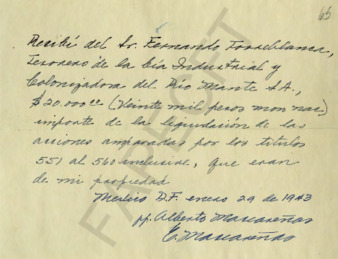 65
Recibí del Sr. Fernando Torreblanca,
Tesorero de la Cía Industrial y
Colonizadora del Río Mante S.A.,
$20.000.00 (Veinte mil pesos mon nac)
importe de la liquidasión de las
acciones amparadas por los titulos
551 al 560 inclusive, que eran
de mi propiedad
Mexico D.F. enero 29 de 1943
pp. Alberto Mascareñas
E. Mascareñas